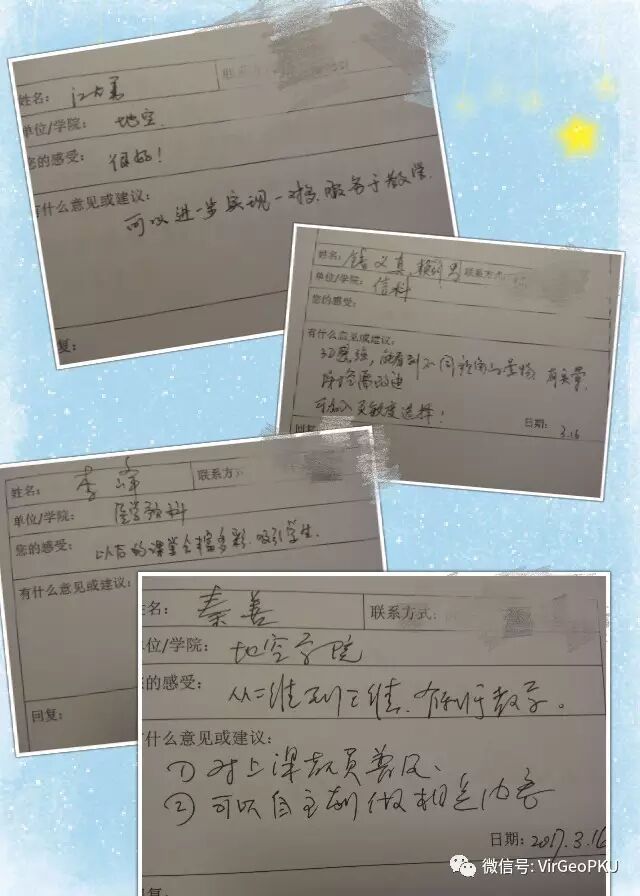 姓名：江大勇
联系方
单位/学院：地空
您的感受：很好！
有什么意见或建议：
可以进一步实现一对多，服务于教学.
复：
姓名：
联系方式：
单位/学院：信科
您的感受：
有什么意见或建议：
3D感强，能看到不同视角的景物，有实景，
可加入灵敏度选择！
日期：3.16
回复
姓名：李峰
联系方
单位/学院：医学预科
您的感受：以后的课堂会精多彩，吸引学生.
有什么意见或建议：
回复：
名：秦善
联系方式：
位/学院：地空学院
的感受：从二维到三维，有利于教学。
什么意见或建议：
① 对上课教员普及、
② 可以自主制做相关内容
日期：2017.3.16
复：
微信号: VirGeoPKU